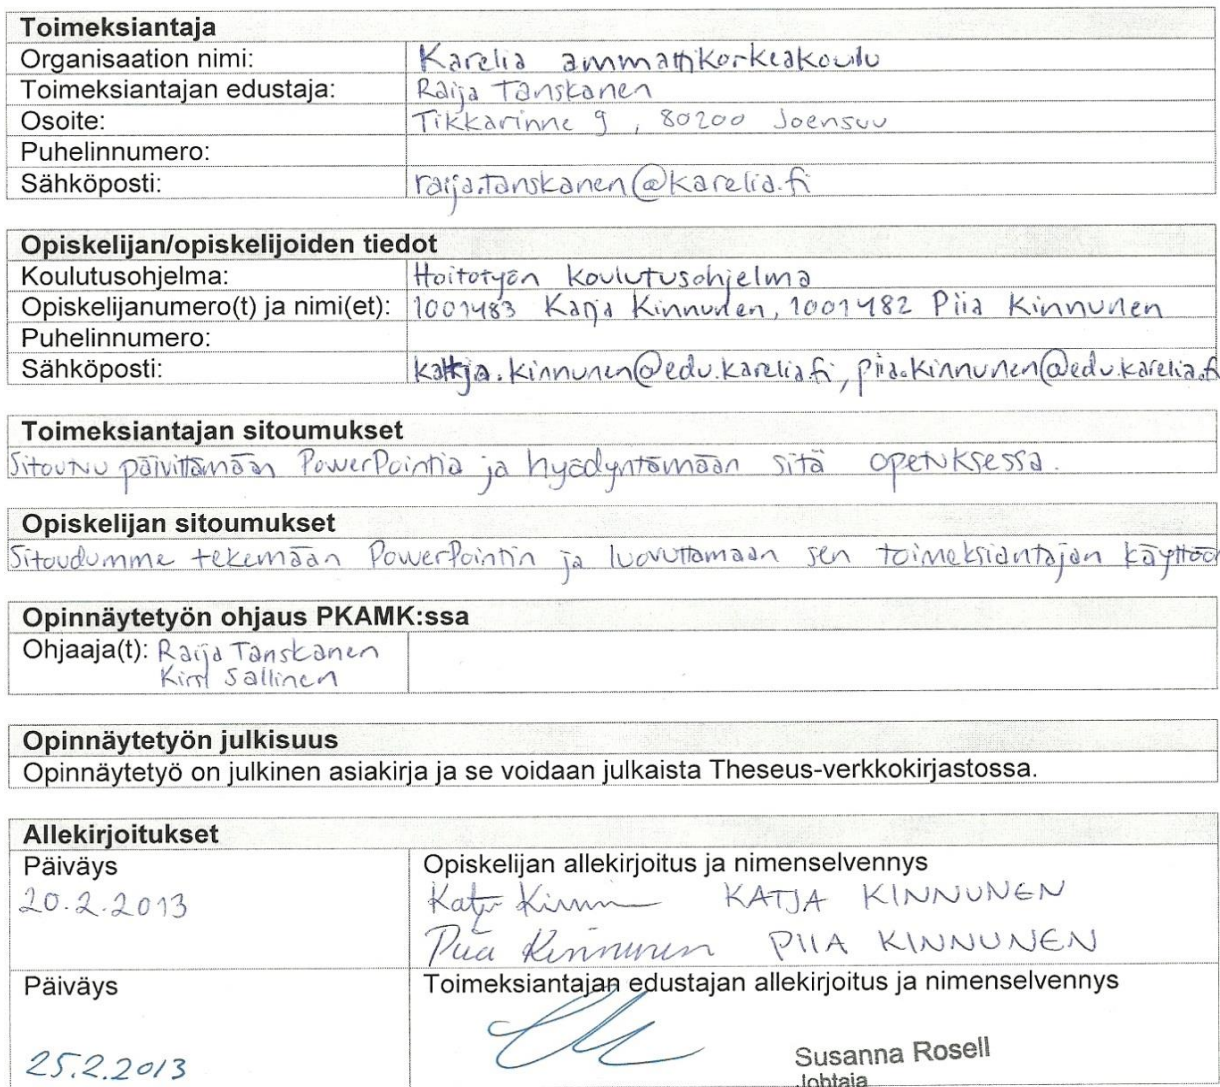 Toimeksiantaja
Organisaation nimi: Karelia ammattikorkeakoulu
Toimeksiantajan edustaja: Raija Tanskanen
Osoite: Tikkarinne 9, 80200 Joensuu
Puhelinnumero:
Sähköposti: raija.tanskanen@karelia.fi
Opiskelijan/opiskelijoiden tiedot
Koulutusohjelma: Hoitotyön koulutusohjelma
Opiskelijanumero(t) ja nimi(et): 1001483 Katja Kinnunen, 1001482 Piia Kinnunen
Puhelinnumero:
Sähköposti: katja.kinnunen@edu.karelia.fi, piia.kinnunen@edu.karelia.fi
Toimeksiantajan sitoumukset
Sitoutuu päivittämään PowerPointia ja hyödyntämään sitä opetuksessa.
Opiskelijan sitoumukset
Sitoudumme tekemään PowerPointin ja luovuttamaan sen toimeksiantajan käyttöön
Opinnäytetyön ohjaus PKAMK:ssa
Ohjaaja(t): Raija Tanskanen
Kirsi Sallinen
Opinnäytetyön julkisuus
Opinnäytetyö on julkinen asiakirja ja se voidaan julkaista Theseus-verkkokirjastossa.
Allekirjoitukset
Päiväys Opiskelijan allekirjoitus ja nimenselvennys
20.2.2013 Katja Kinnunen KATJA KINNUNEN
Piia Kinnunen PIIA KINNUNEN
Päiväys Toimeksiantajan edustajan allekirjoitus ja nimenselvennys
25.2.2013 Susanna Rosell
Johtaja